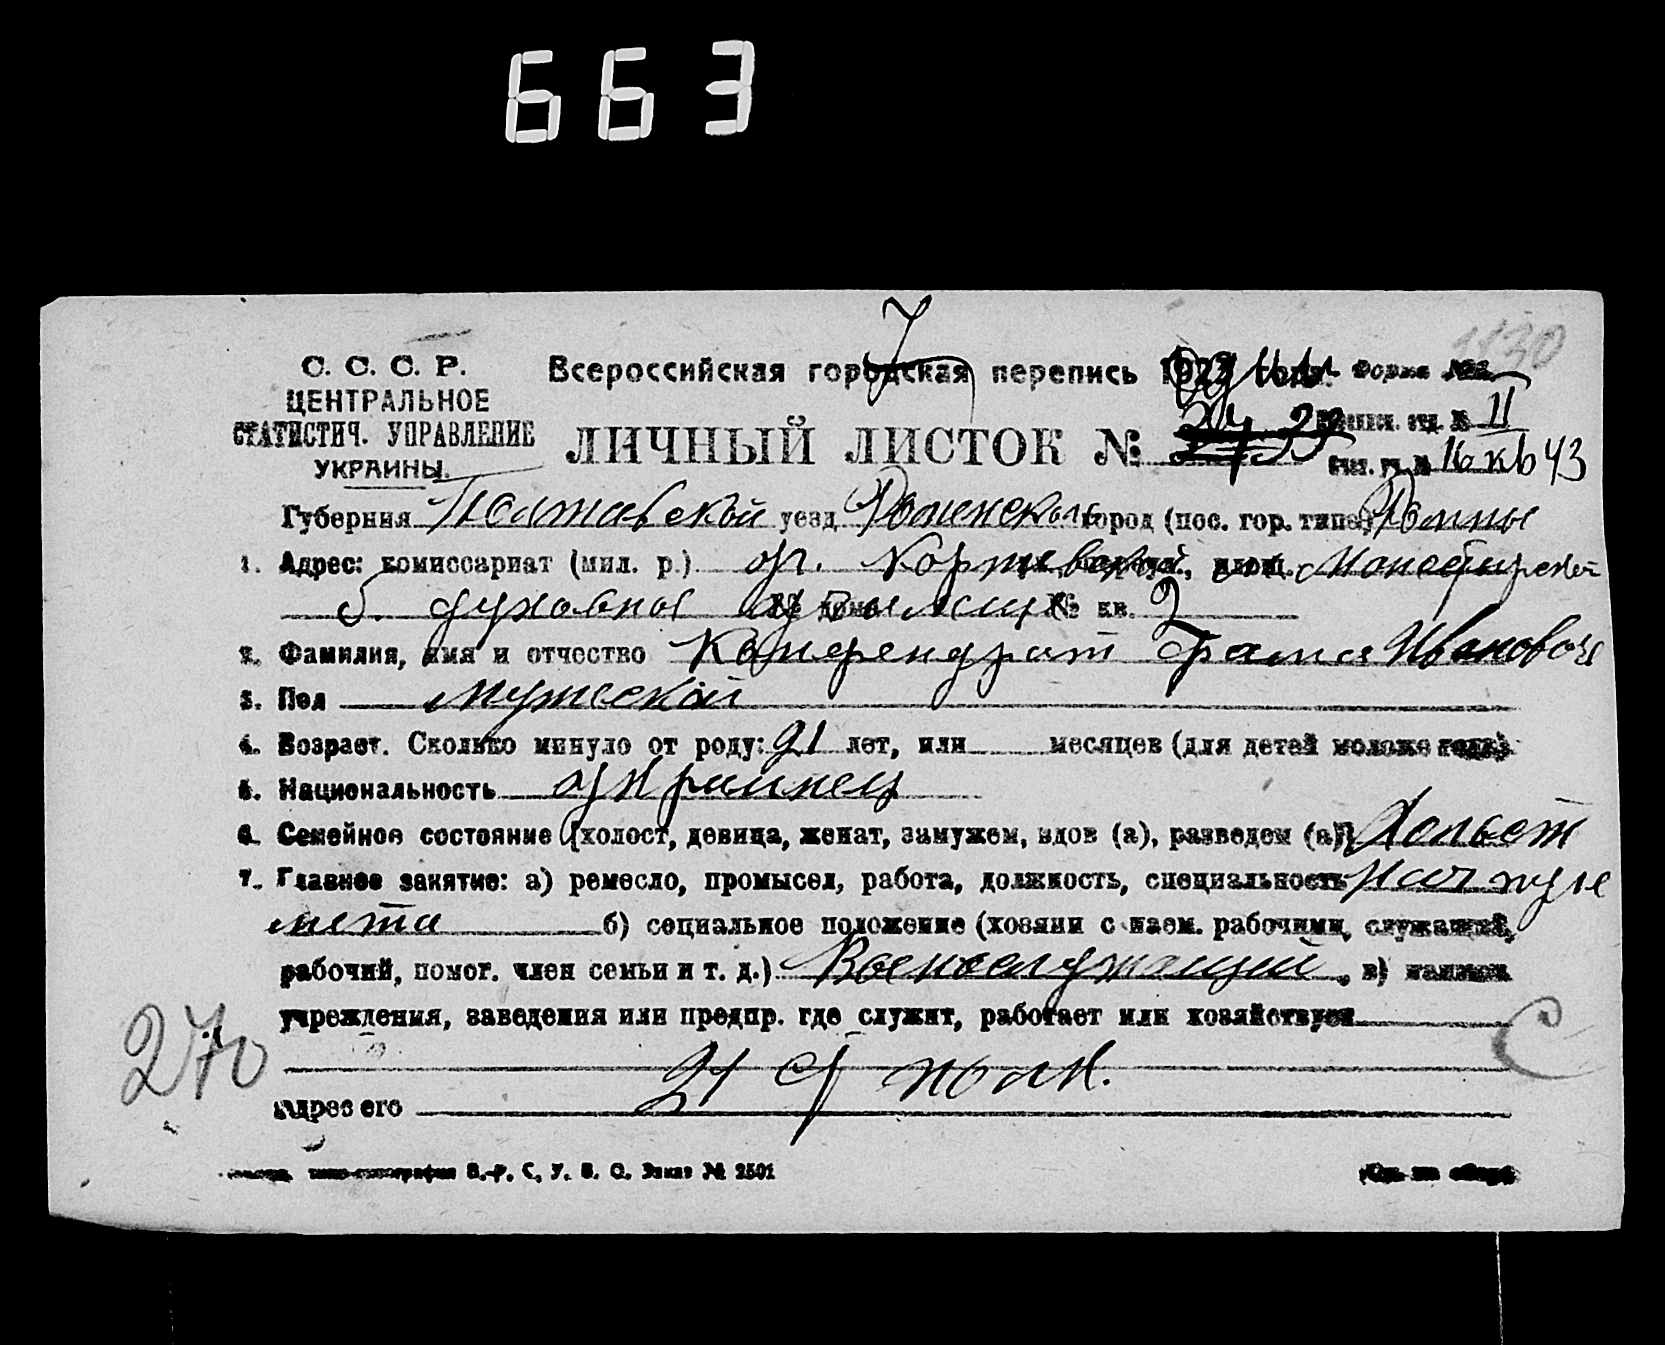 663
1130
7
С. С. С. Р.
ЦЕНТРАЛЬНОЕ
СТАТИСТИЧ. УПРАВЛЕНИЕ
УКРАИНЫ.
Всероссийская городская перепись 1923 года. Форма №
ЛИЧНЫЙ ЛИСТОК №
№ 11
№ 16 кв 43
Губерния Полтавской уезд Роменском город (пос. гор. типа) Ромны
1. Адрес: комиссариат (мил. р.)
б. духовное училищ № кв. 2
2. Фамилия, имя и отчество Иванович
3. Пол мужской
4. Возраст. Сколько минуло от роду: 21 лет, или месяцев (для детей моложе года)
5. Национальность украинец
6. Семейное состояние (холост, девица, женат, замужем, вдов (а), разведен (а)) Холост
7. Главное занятие: а) ремесло, промысел, работа, должность, специальность Нач пуле
мета б) социальное положение (хозяин с наем. рабочими, служащий,
рабочий, помог. член семьи и т. д.) Военослужащий, в)
учреждения, заведения или предпр. где служит, работает или хозяйствует
21 полк.
Адрес его
270
С
В.-Р. С. У. В. О. Заказ № 2501